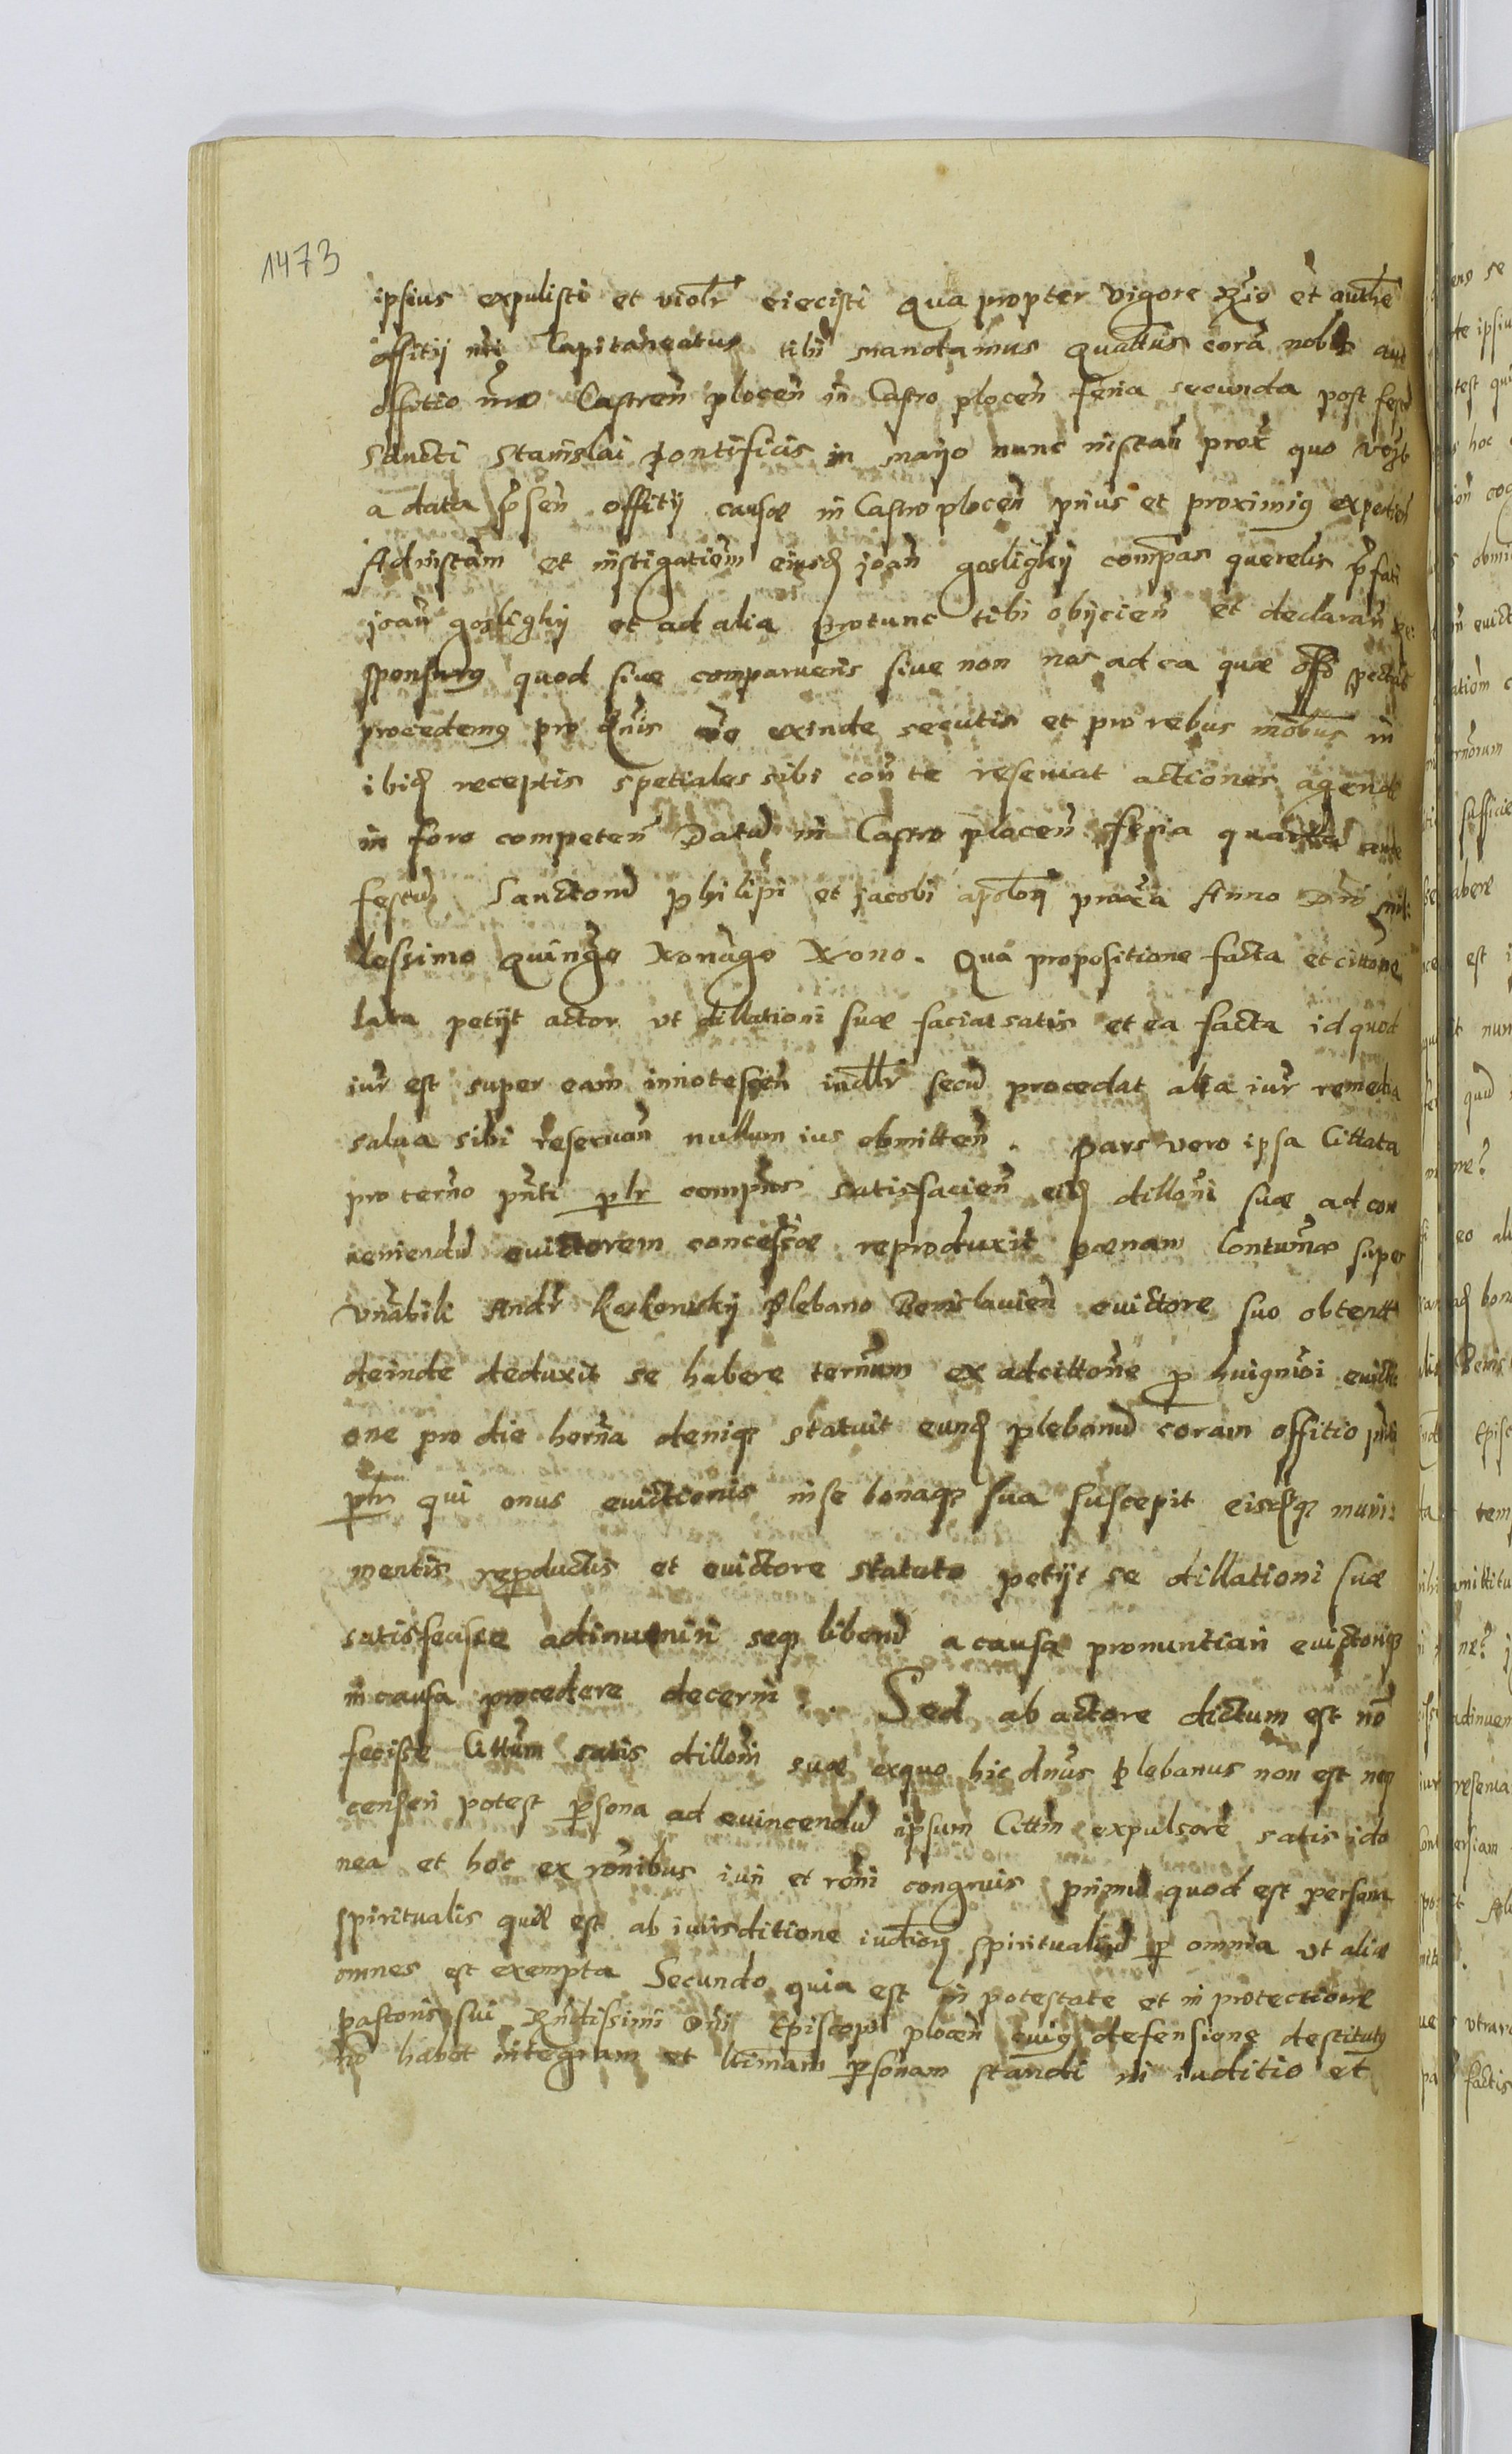 1473
ipsius expulisti et violr eiecisti Qua propter vigore et authe
offitij nri Capitaneatus tibi mandamus Quattus cora nobis aut
offitio nro Castren plocen in Castro plocen feria secunda post festu
Sancti Stanislai pontificis in mayo nunc instan prox quo
a data psen offitij causæ in Castro plocen prius et proximius
Ad instam et instigatiem eiusd joan goslighy compas querelis pfati
joan goslighy et ad alia protunc tibi obijcien et declaran re:
sponsurus quod siue comparueris siue non nos ad ea quæ offo spectat
procedemus pro dnis exinde secutis et pro rebus mobus in
ibid receptis spetiales sibi con te reseruat actiones agend
in foro competen Datu in Castro plocen feria quarta ante
festu Sanctoru philipi et jacobi aplor Anno Dni mil:
lessimo Quingo Nonago Nono. Qua propositione facta et cittone
lata petijt actor vt dillationi suæ faciat satis et ea facta id quod
iur est super eam innotescen iudllr secu procedat alia iur remedia
salua sibi reseruan nullum ius obmitten. Pars vero ipsa Cittata
pro terno pnti plr compns satisfacien eid dilloni suæ ad con
ueniendu euictorem concessæ reproduxit pænam Contumæ super
Vnabili Andr Koskowsky Plebano Bemislauien euictore suo obtent
deinde deduxit se habere ternum ex adcittone p huigmoi euicti
one pro die herna deniq statuit eund plebanu coram offitio pnti
plr qui onus euictionis in se bonaq sua suscepit eisdq muni:
mentis repductis et euictore statuto petijt se dillationi suæ
satisfecisse adinueniri seq liberu a causa pronuntiari euictoriq
in causa procedere decerni. Sed ab actore dictum est no
fecisse Cittum satis dilloni suæ exquo hic dnus plebanus non est neq
censeri potest psona ad euincendu ipsum Cittm expulsore satis ido
nea et hoc ex ronibus iuri et roni congruis primu quod est persona
spiritualis quæ est ab iurisditione iudior spiritualiu p omnia vt aliæ
omnes est exempta Secundo quia est in potestate et in protectione
pastoris sui Rndissimi Dni Episcopi plocen cuius defensione destitutus
no habet integram et ltimam psonam standi in iuditio et